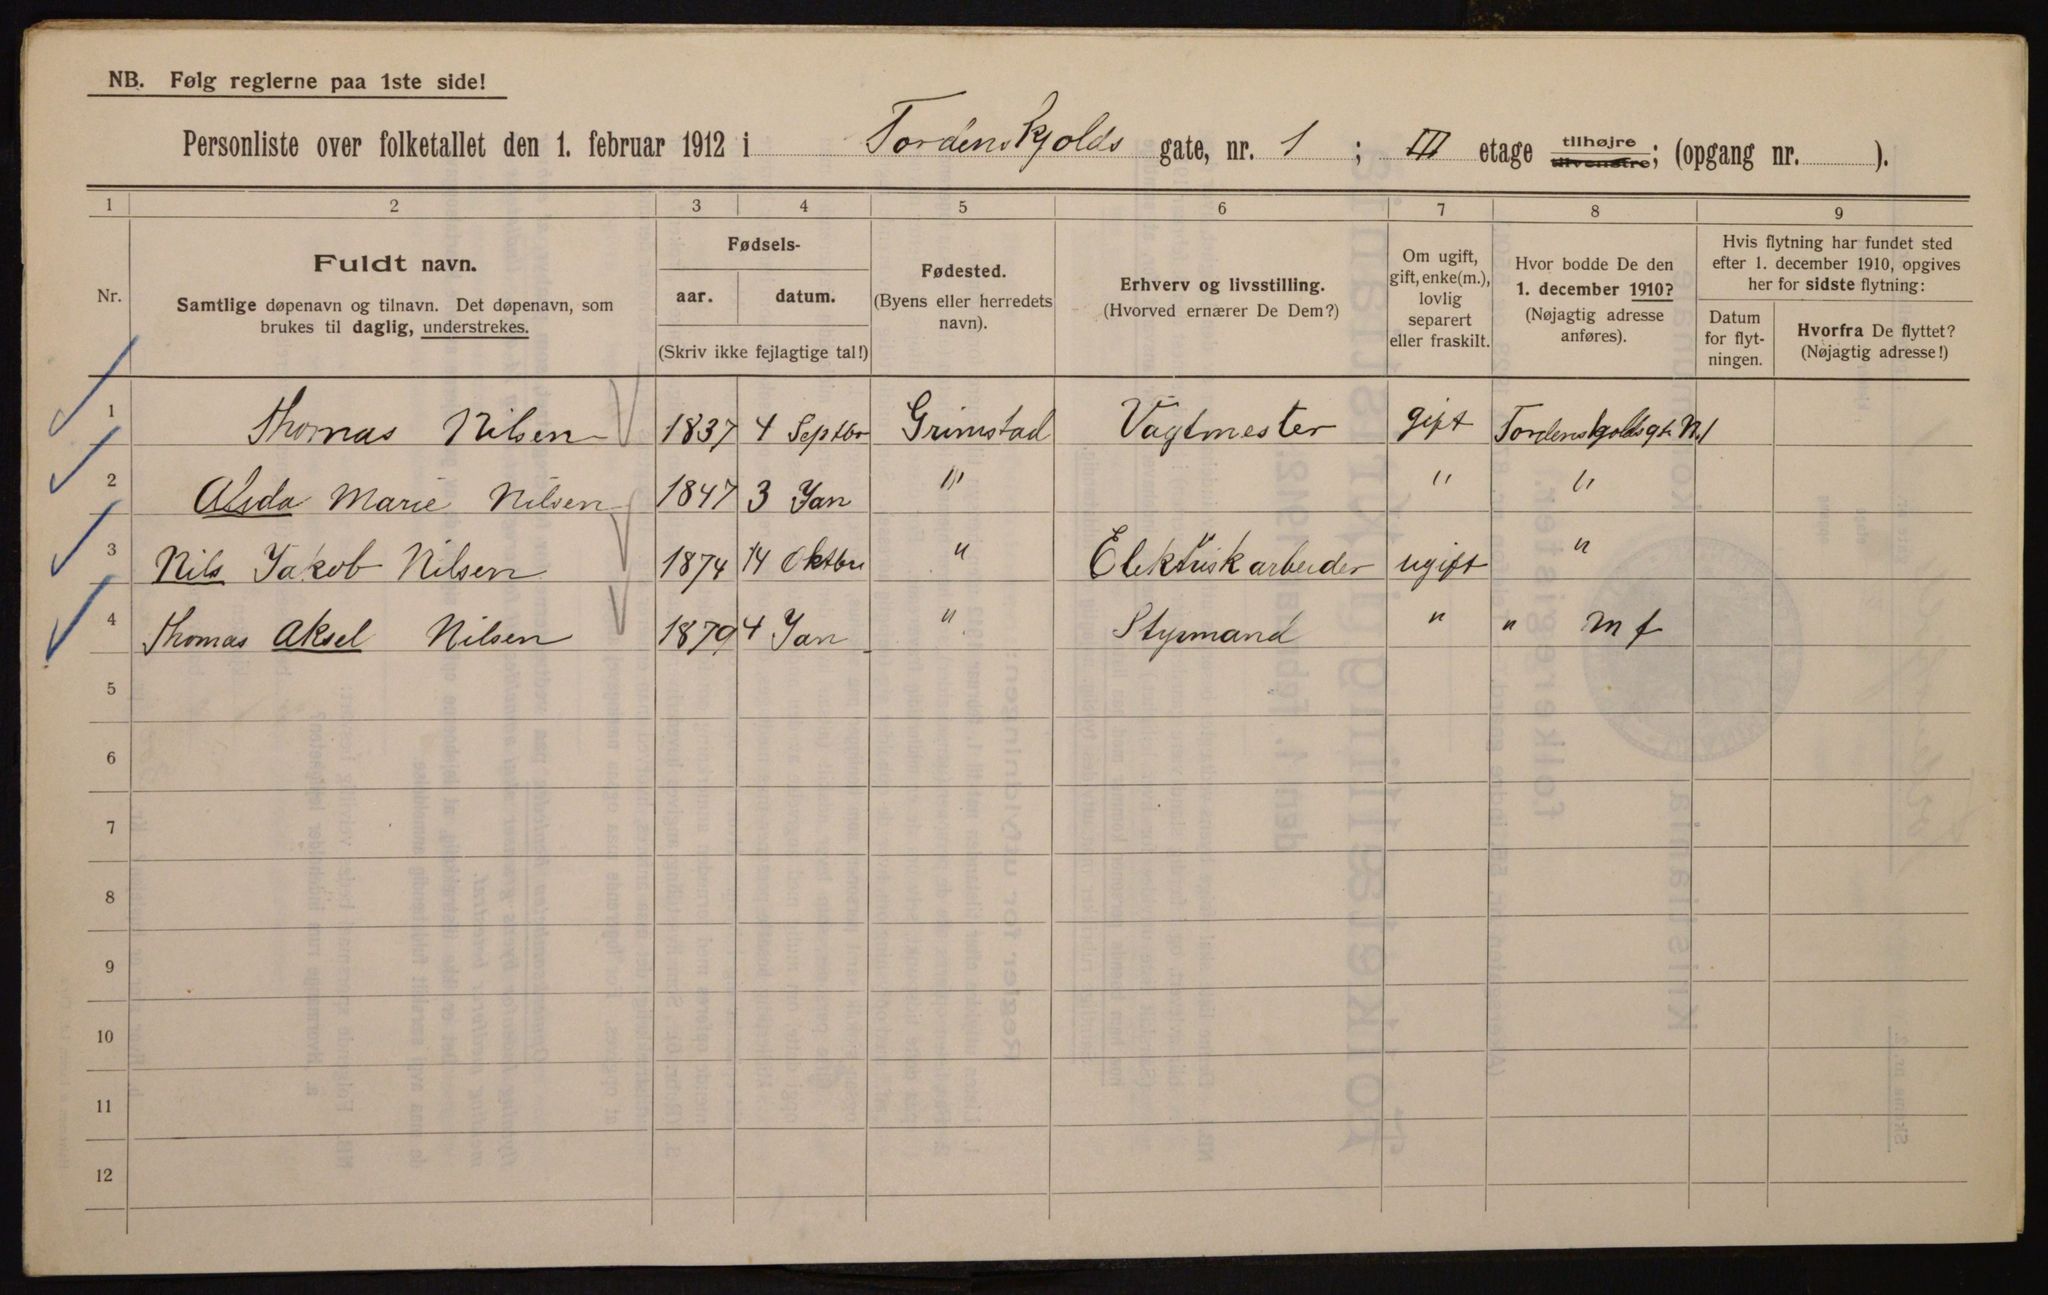 NB. Følg reglerne paa 1ste side!
Personliste over folketallet den 1. februar 1912 i Tordenskjolds gate, nr. 1 ; III etage tilhøjre tilvenstre; (opgang nr. ).
1 2 3 4 5 6 7 8 9
Nr.
Fuldt navn.
Samtlige døpenavn og tilnavn. Det døpenavn, som
brukes til daglig, understrekes.
Fødsels-
aar. datum.
(Skriv ikke fejlagtige tal!)
Fødested.
(Byens eller herredets
navn).
Erhverv og livsstilling.
(Hvorved ernærer De Dem?)
Om ugift,
gift, enke(m.),
lovlig
separert
eller fraskilt.
Hvor bodde De den
1. december 1910?
(Nøjagtig adresse
anføres).
Hvis flytning har fundet sted
efter 1. december 1910, opgives
her for sidste flytning:
Datum
for flyt-
ningen.
Hvorfra De flyttet?
(Nøjagtig adresse!)
1 Thomas Nilsen 1837 4 Septbr Grimstad Vagtmester gift Tordenskjoldsgt. N. 1
2 Alida Marie Nilsen 1847 3 Jan " " "
3 Nils Jakob Nilsen 1874 14 Oktbr " Elektriskarbeider ugift "
4 Thomas Aksel Nilsen 1879 4 Jan " Styrmand " " m f
5
6
7
8
9
10
11
12